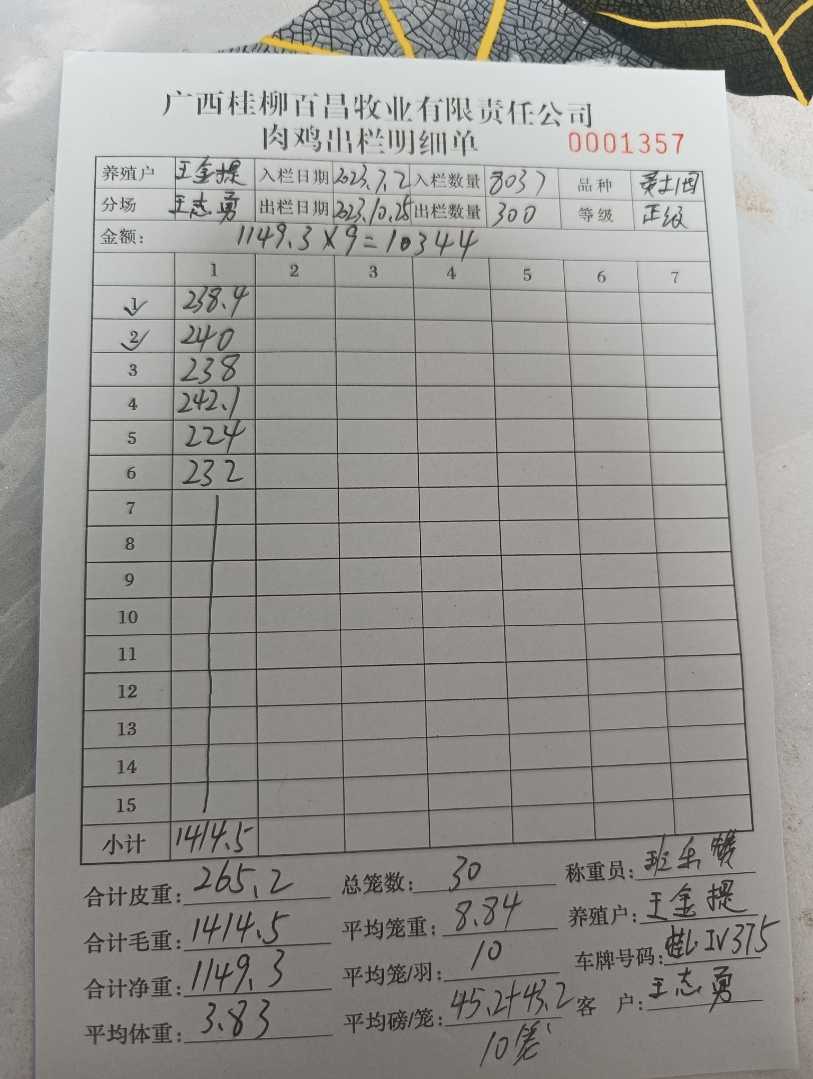 广西桂柳百昌牧业有限责任公司
肉鸡出栏明细单 0001357
养殖户 王金提 入栏日期 2023.7.2 入栏数量 8037 品种
分场 王志勇 出栏日期 2023.10.25 出栏数量 300 等级 正级
金额: 1149.3×9=10344
1 2 3 4 5 6 7
1 238.4
2 240
3 238
4 242.1
5 224
6 232
7
8
9
10
11
12
13
14
15
小计 1414.5
合计皮重: 265.2 总笼数: 30 称重员: 班
合计毛重: 1414.5 平均笼重: 8.84 养殖户: 王金提
合计净重: 1149.3 平均笼/羽: 10 车牌号码: 桂L·IV375
平均体重: 3.83 平均磅/笼: 45.2+43.2 客 户: 王志勇
10笼